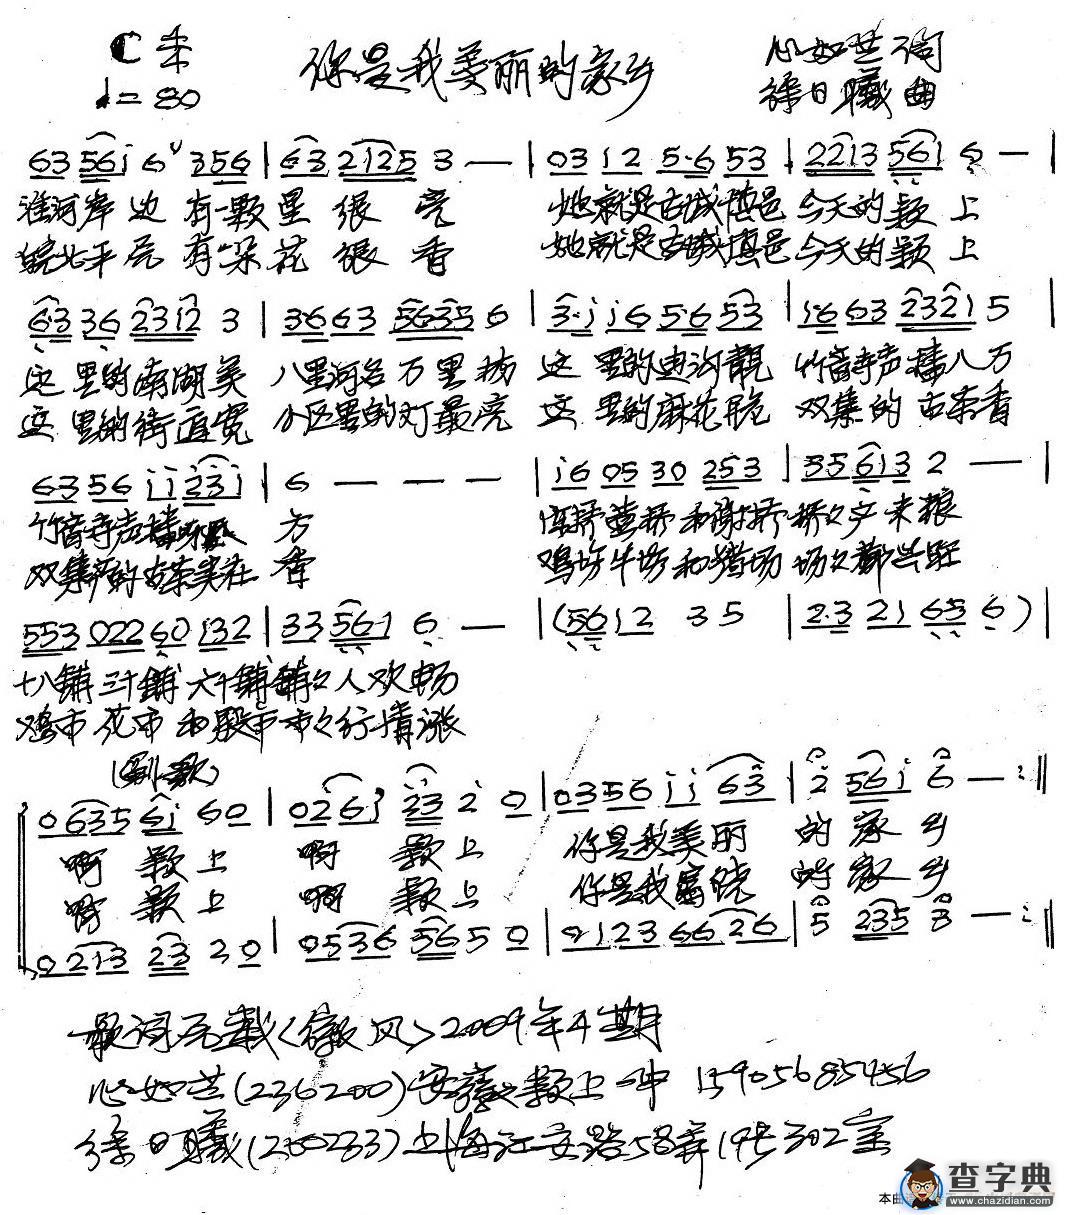 C 调
♩=80
你是我美丽的家乡
心如芷 词
徐日曦 曲
63 56i 6 356 | 63 2125 3 — | 03 12 5·6 53 | 2213 561 6 — |
淮河岸边 有一颗星 很 亮 她就是古城慎邑 今天的颍上
皖北平原 有一朵花 很 香 她就是古城慎邑 今天的颍上
6·3 36 2312 3 | 3·6 63 5635 6 | 3·i i6 5·6 53 | i·6 63 2321 5 |
这里的南湖美 八里河名万里扬 这里的迪沟靓 竹音寺声播八方
这里的街道宽 小区里的灯最亮 这里的麻花脆 双集的古茶香
63 56 ii 23i | 6 — — — | i6 05 30 253 | 35 613 2 — |
竹音寺声播 方 桥和谢桥 桥々产米粮
双集的古茶实在香 鸡场牛场和猪场 场々都兴旺
553 022 60 132 | 33 561 6 — | (5612 3 5 | 2·3 21 65 6) |
十八铺三十铺六十铺铺々人欢畅
鸡市花市和 市市々行情涨
(副歌)
0635 6i 60 | 026i 23 2 0 | 0356 ii 63 | 2 56i 6 — :||
啊 颍上 啊 颍上 你是我美丽 的家乡
啊 颍上 啊 颍上 你是我富饶 的家乡
0213 23 20 | 0536 56 5 0 | 0123 66 26 | 5 235 3 — :||
歌词原载〈徽风〉2009年4期
心如芷(236200)安徽颍上一中 15905685456
徐日曦(200233)上海江安路58弄19号302室
查字典
www.chazidian.com
本曲